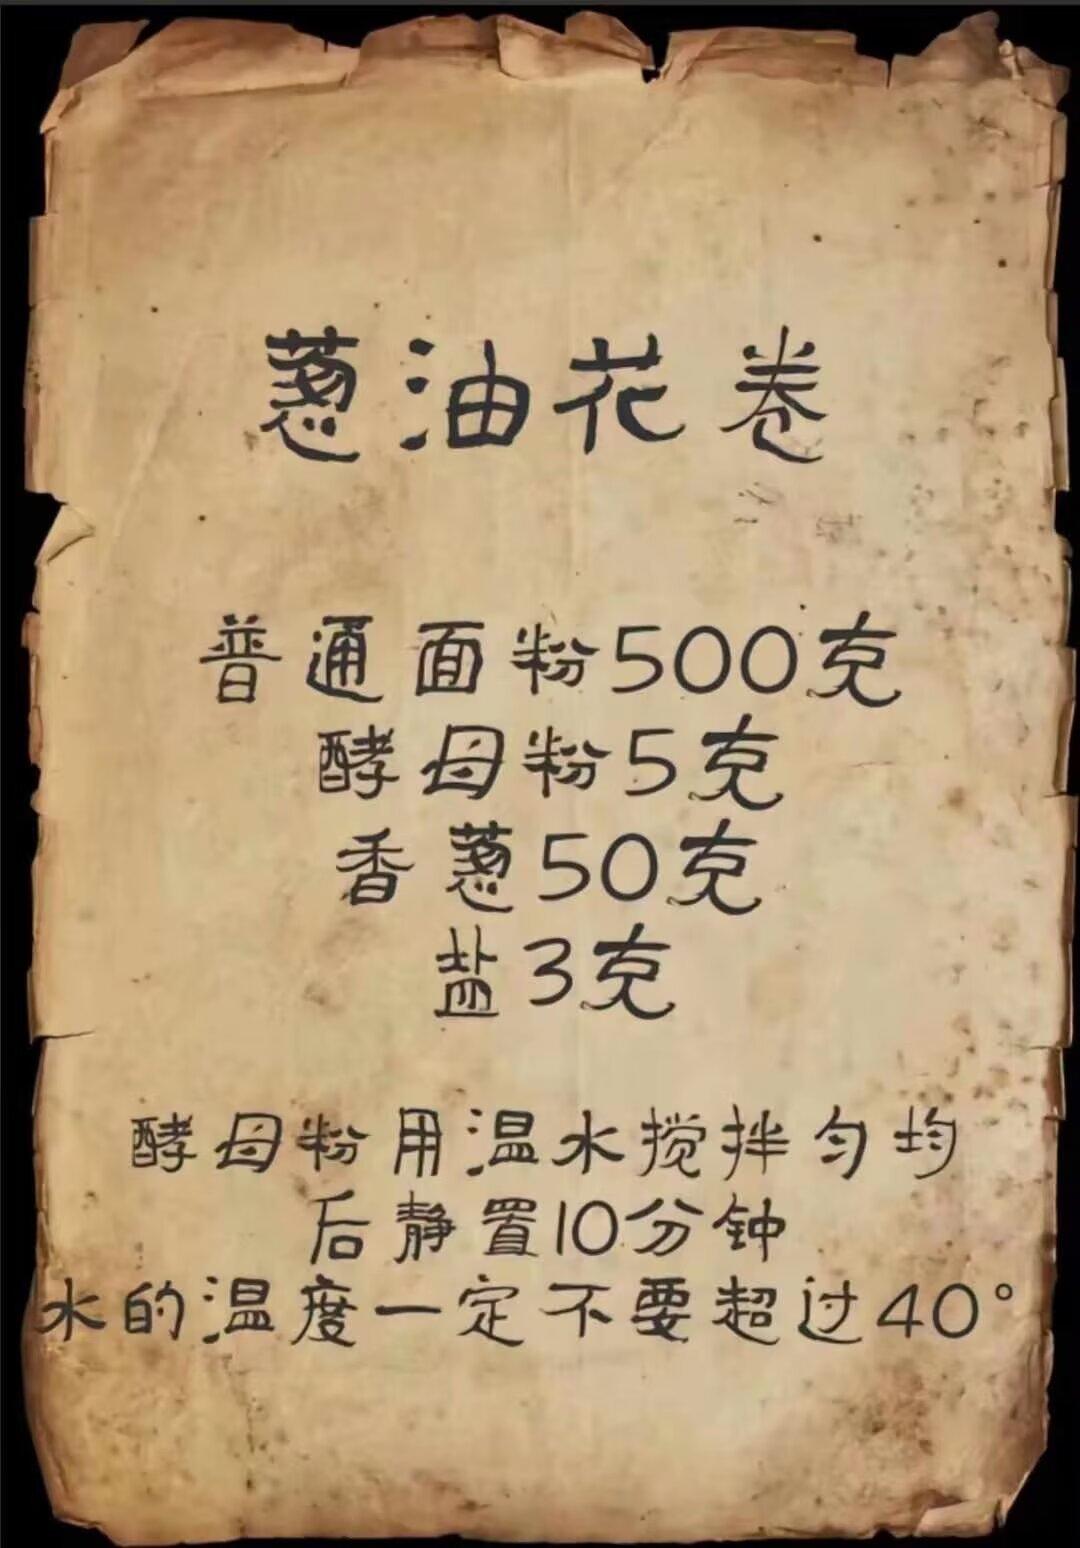 葱油花卷
普通面粉500克
酵母粉5克
香葱50克
盐3克
酵母粉用温水搅拌匀均
后静置10分钟
水的温度一定不要超过40°